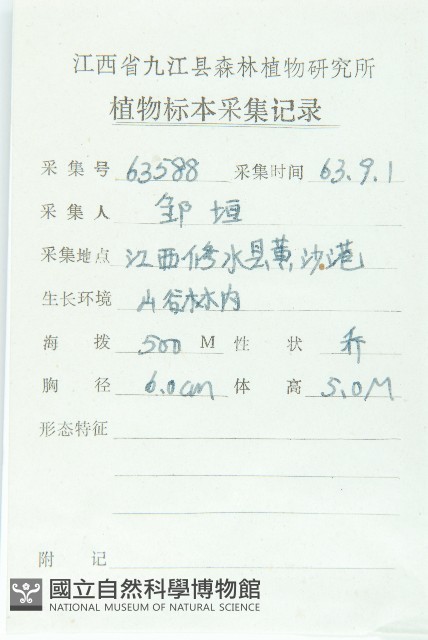 江西省九江县森林植物研究所
植物标本采集记录
采集号 63588 采集时间 63.9.1
采集人 邹垣
采集地点 江西修水县黄沙港
生长环境 山谷林内
海拨 500 M 性状 乔
胸径 6.0cm 体高 5.0M
形态特征
附记
國立自然科學博物館
NATIONAL MUSEUM OF NATURAL SCIENCE